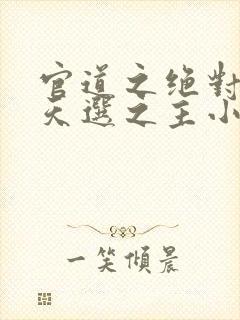 官道之绝對
天選之主小
一笑傾晨